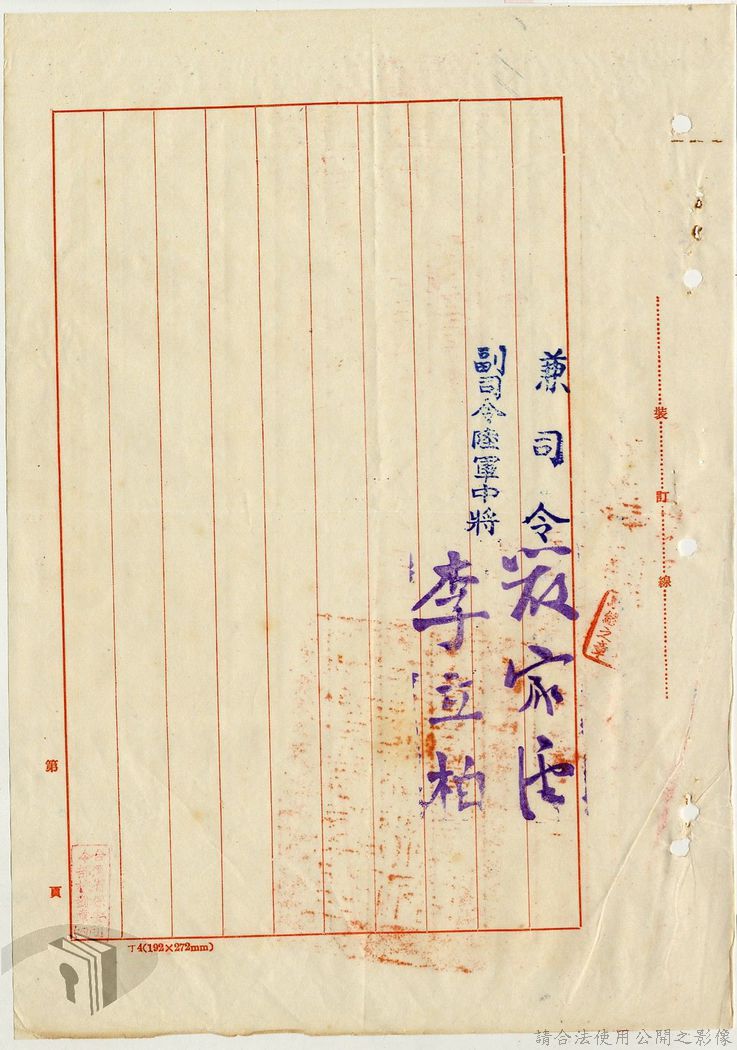 兼司令嚴家淦
副司令陸軍中將李立柏
裝訂線
之章
第 頁
丁4(192×272mm)
請合法使用公開之影像